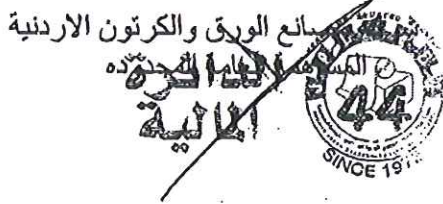 مصانع الورق والكرتون الاردنية
المساهمة العامة المحدوده
الدائرة
المالية
44
SINCE 197